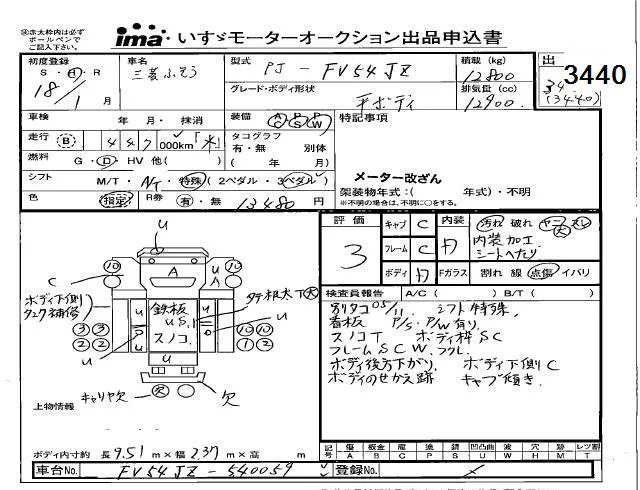 ※赤太枠内は必ず
ボールペンで
ご記入下さい。
ima いすゞモーターオークション出品申込書
初度登録 S・H・R 18年 1月
車名 三菱ふそう
型式 PJ-FV54JZ
積載(kg) 12800
グレード・ボディ形状 平ボディ
排気量(cc) 12900
出 34 (3440)
3440
車検 年 月・抹消
装備 A/C P/S P/W
特記事項
走行 (B) 447,000km「米」
タコグラフ 有・無 別体 (年 月)
燃料 G・D・HV 他( )
メーター改ざん
シフト M/T・A/T・特殊(2ペダル・3ペダル)
架装物年式:( 年式)・不明
※不明の場合は、不明に○をする。
色 指定 R券 有・無 13480円
評価 3
キャブ C
フレーム C
ボディ D
内装 D
Fガラス
汚れ 破れ ヤニ 大 スレ
内装加工
シートへたり
割れ 線 点傷 イバリ
検査員報告 A/C( ) B/T( )
別タコ 05/11 シフト特殊.
看板 P/S. P/W有り.
スノコT ボディ枠SC
フレームSCW.フクレ.
ボディ後方下がり. ボディ下側C
ボディのせかえ跡 キャブ傾き.
U
10 10
C A U A
ボディ下側
タンク補修
タテ根太下大
鉄板
US.1
スノコ.
U U
3 3 10 10
2 2 1 2
U U
キャリヤ欠 欠 欠
上物情報
ボディ内寸約 長 9.51 m×幅 2.37 m×高 m
記号 傷 板金 腐 塗 錆 凹 凸凹曲 波 穴 跡 レツ割
A B C P S U W H M T
車台No. FV54JZ-540059
登録No.